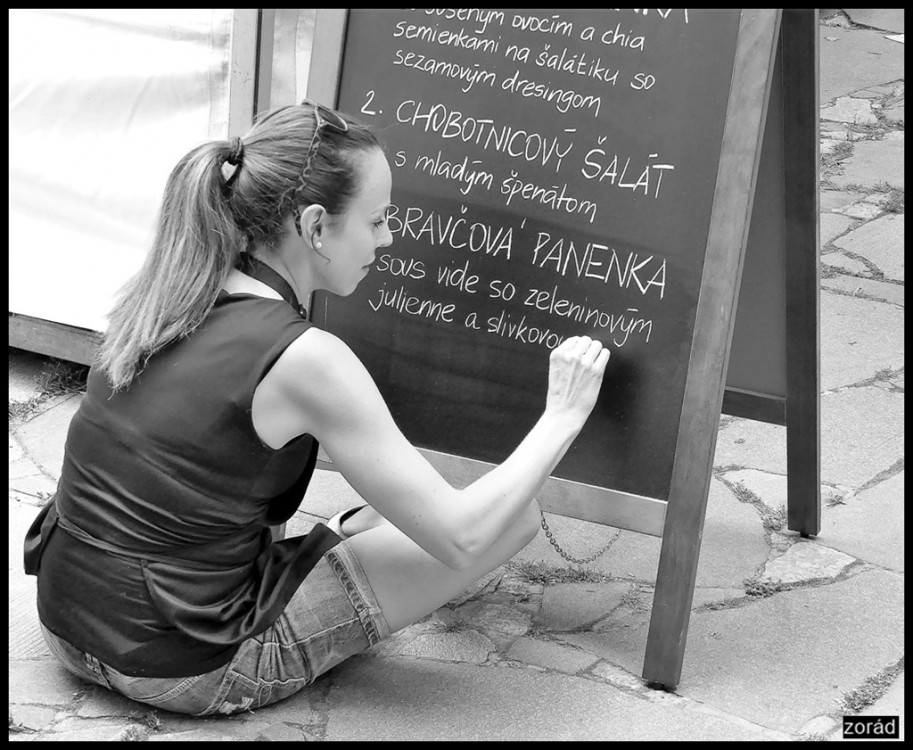 sušeným ovocím a chia
semienkami na šalátiku so
sezamovým dresingom
2. CHOBOTNICOVÝ ŠALÁT
s mladým špenátom
BRAVČOVÁ PANENKA
sous vide so zeleninovým
julienne a slivkovou
zorád